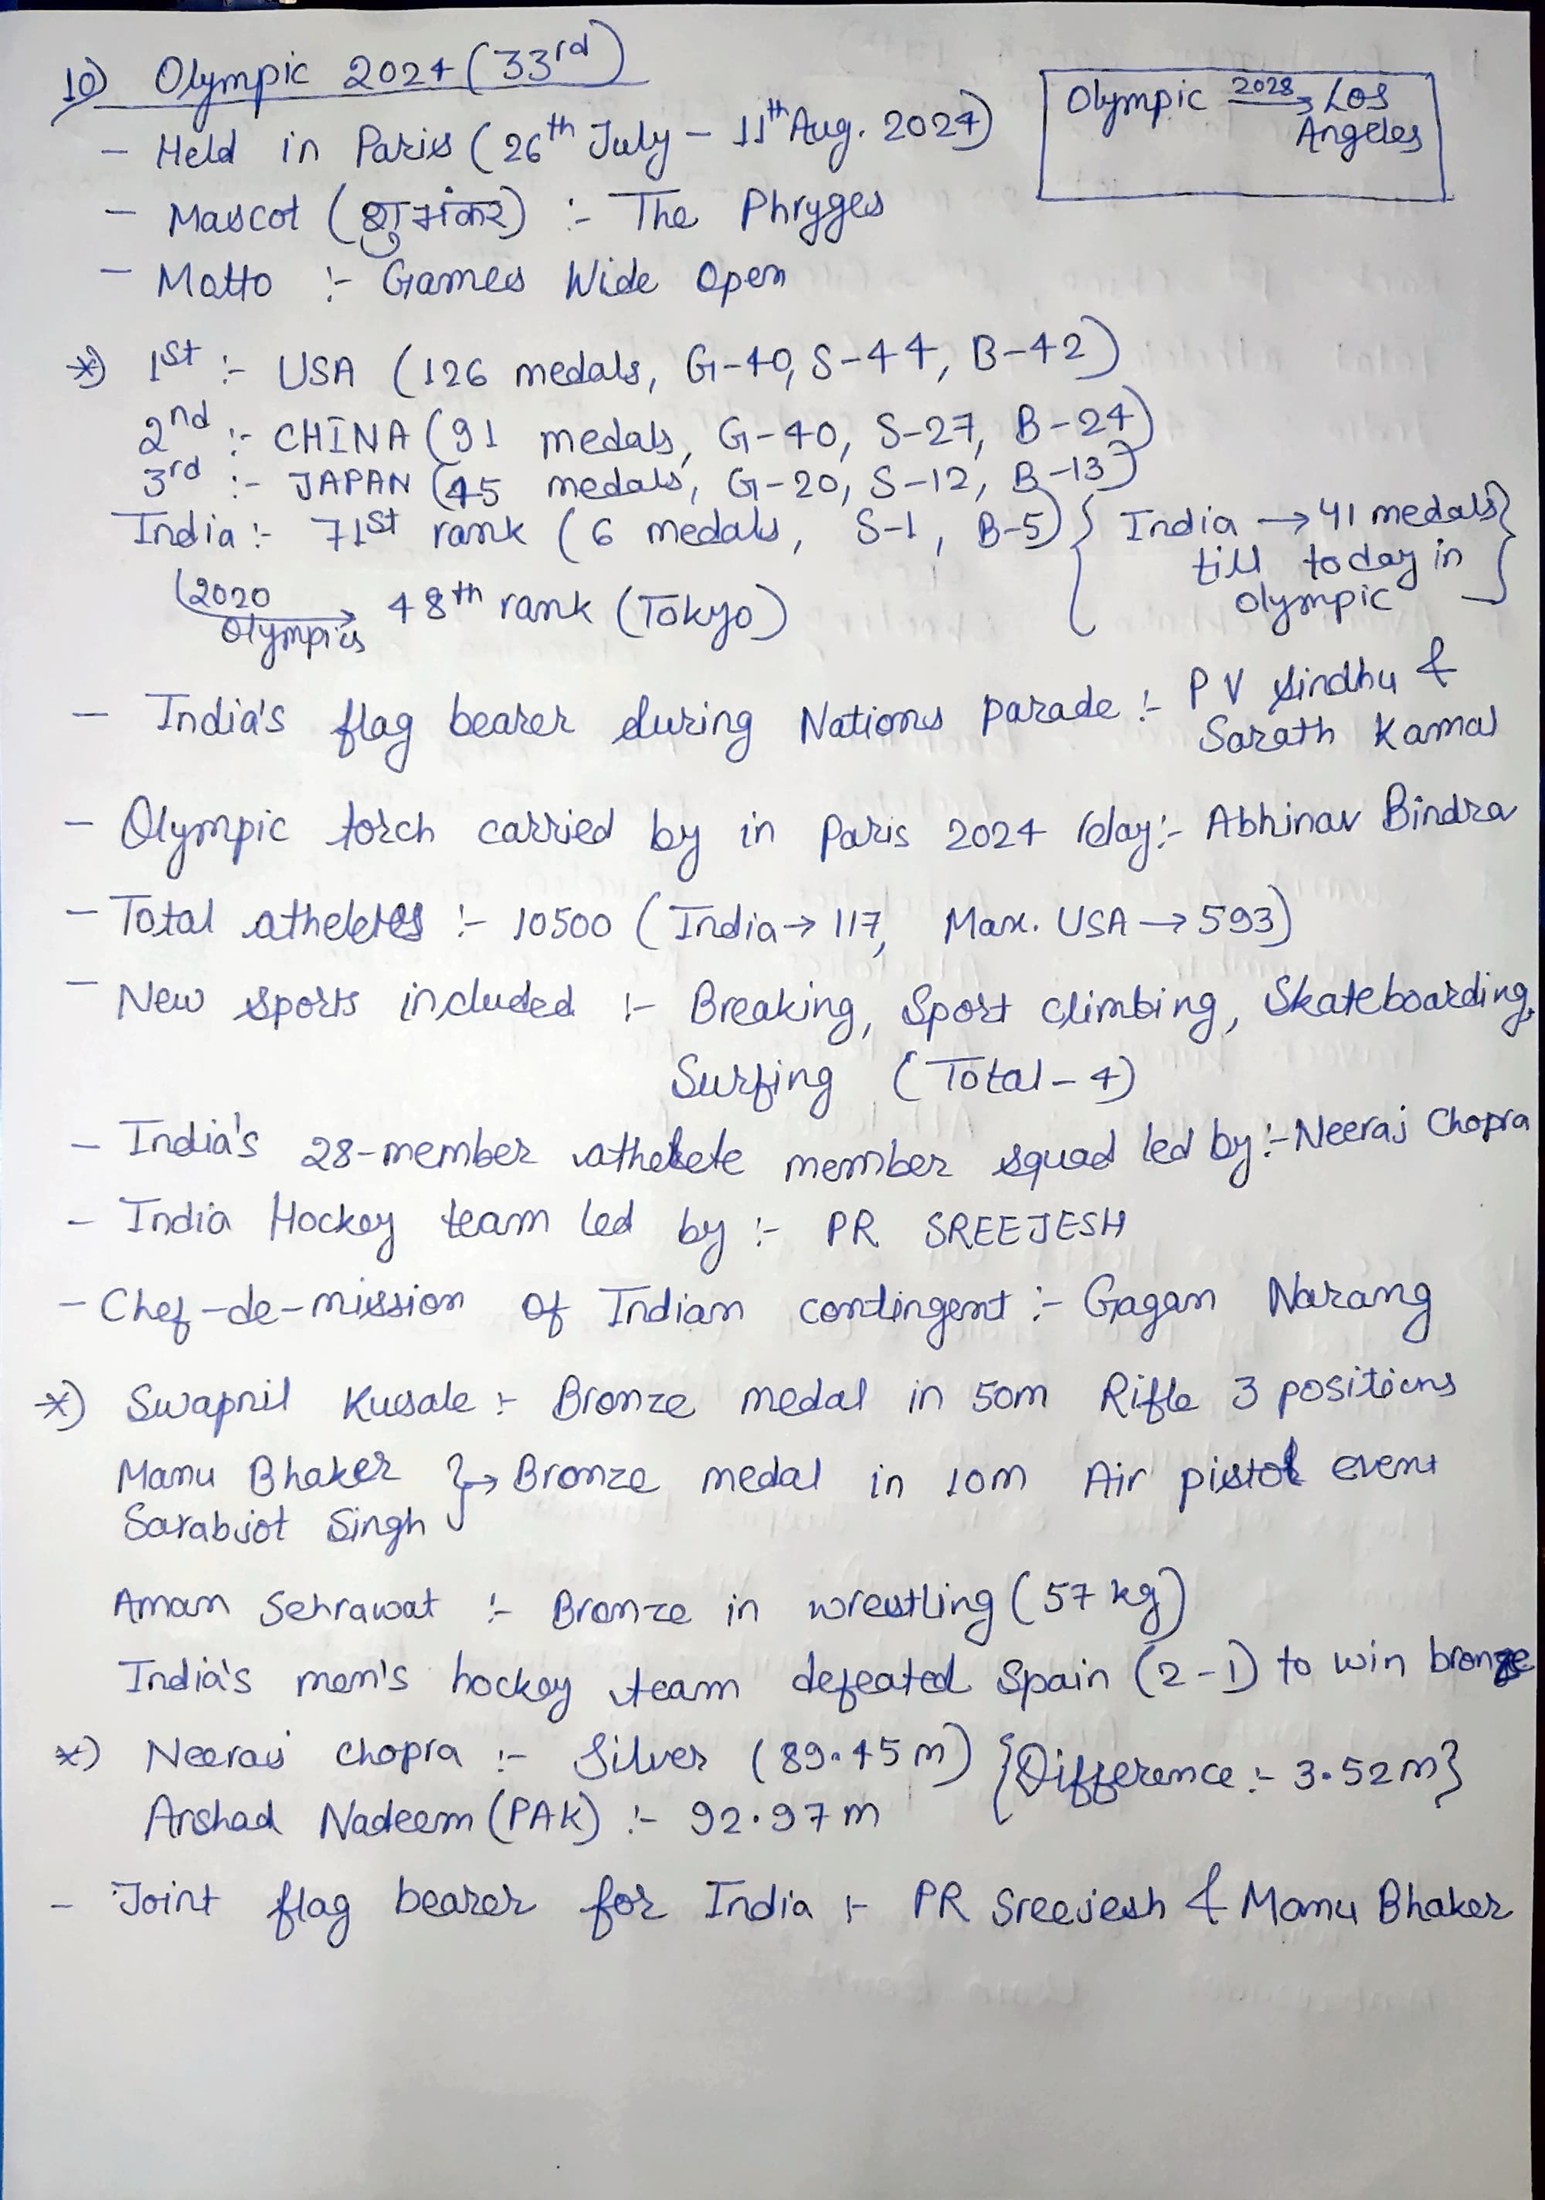 10) Olympic 2024 (33rd)
Olympic 2028→ Los Angeles
- Held in Paris (26th July - 11th Aug. 2024)
- Mascot (शुभंकर) :- The Phryges
- Motto :- Games Wide Open
*) 1st :- USA (126 medals, G-40, S-44, B-42)
2nd :- CHINA (91 medals, G-40, S-27, B-24)
3rd :- JAPAN (45 medals, G-20, S-12, B-13)
India :- 71st rank (6 medals, S-1, B-5) {India → 41 medals till today in olympic}
2020 Olympics → 48th rank (Tokyo)
- India's flag bearer during Nations parade :- P V Sindhu & Sarath Kamal
- Olympic torch carried by in Paris 2024 relay :- Abhinav Bindra
- Total atheletes :- 10500 (India → 117, Max. USA → 593)
- New sports included :- Breaking, Sport climbing, Skateboarding,
Surfing (Total - 4)
- India's 28-member athelete member squad led by :- Neeraj Chopra
- India Hockey team led by :- PR SREEJESH
- Chef-de-mission of Indian contingent :- Gagan Narang
*) Swapnil Kusale :- Bronze medal in 50m Rifle 3 positions
Manu Bhaker
Sarabjot Singh } → Bronze medal in 10m Air pistol event
Aman Sehrawat :- Bronze in wrestling (57 kg)
India's men's hockey team defeated Spain (2-1) to win bronze
*) Neeraj chopra :- Silver (89.45 m) {Difference :- 3.52 m}
Arshad Nadeem (PAK) :- 92.97 m
- Joint flag bearer for India :- PR Sreejesh & Manu Bhaker